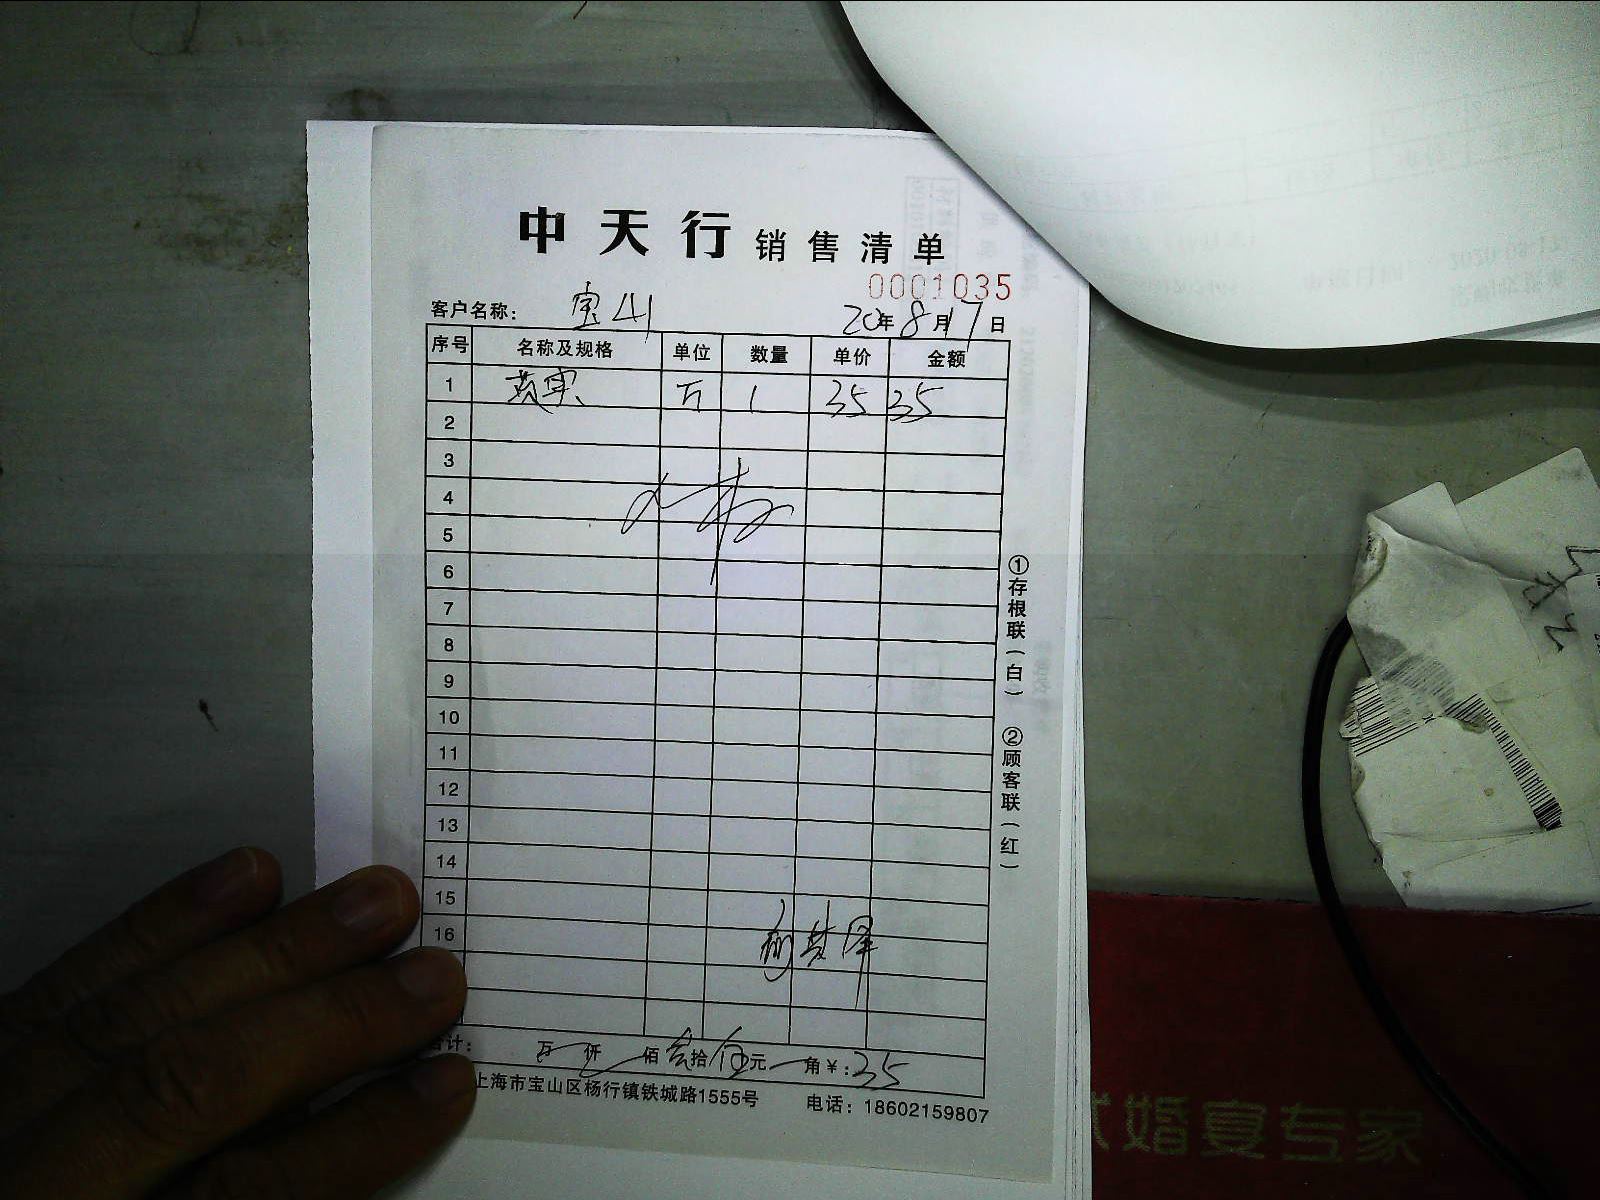 中天行 销售清单
0001035
客户名称： 宝山 20年8月17日
序号 名称及规格 单位 数量 单价 金额
1 芡实 斤 1 35 35
2
3
4
5
6
7
8
9
10
11
12
13
14
15
16
合计： 万 仟 佰 叁拾伍元 角￥：35
上海市宝山区杨行镇铁城路1555号 电话：18602159807
①存根联（白） ②顾客联（红）
式婚宴专家